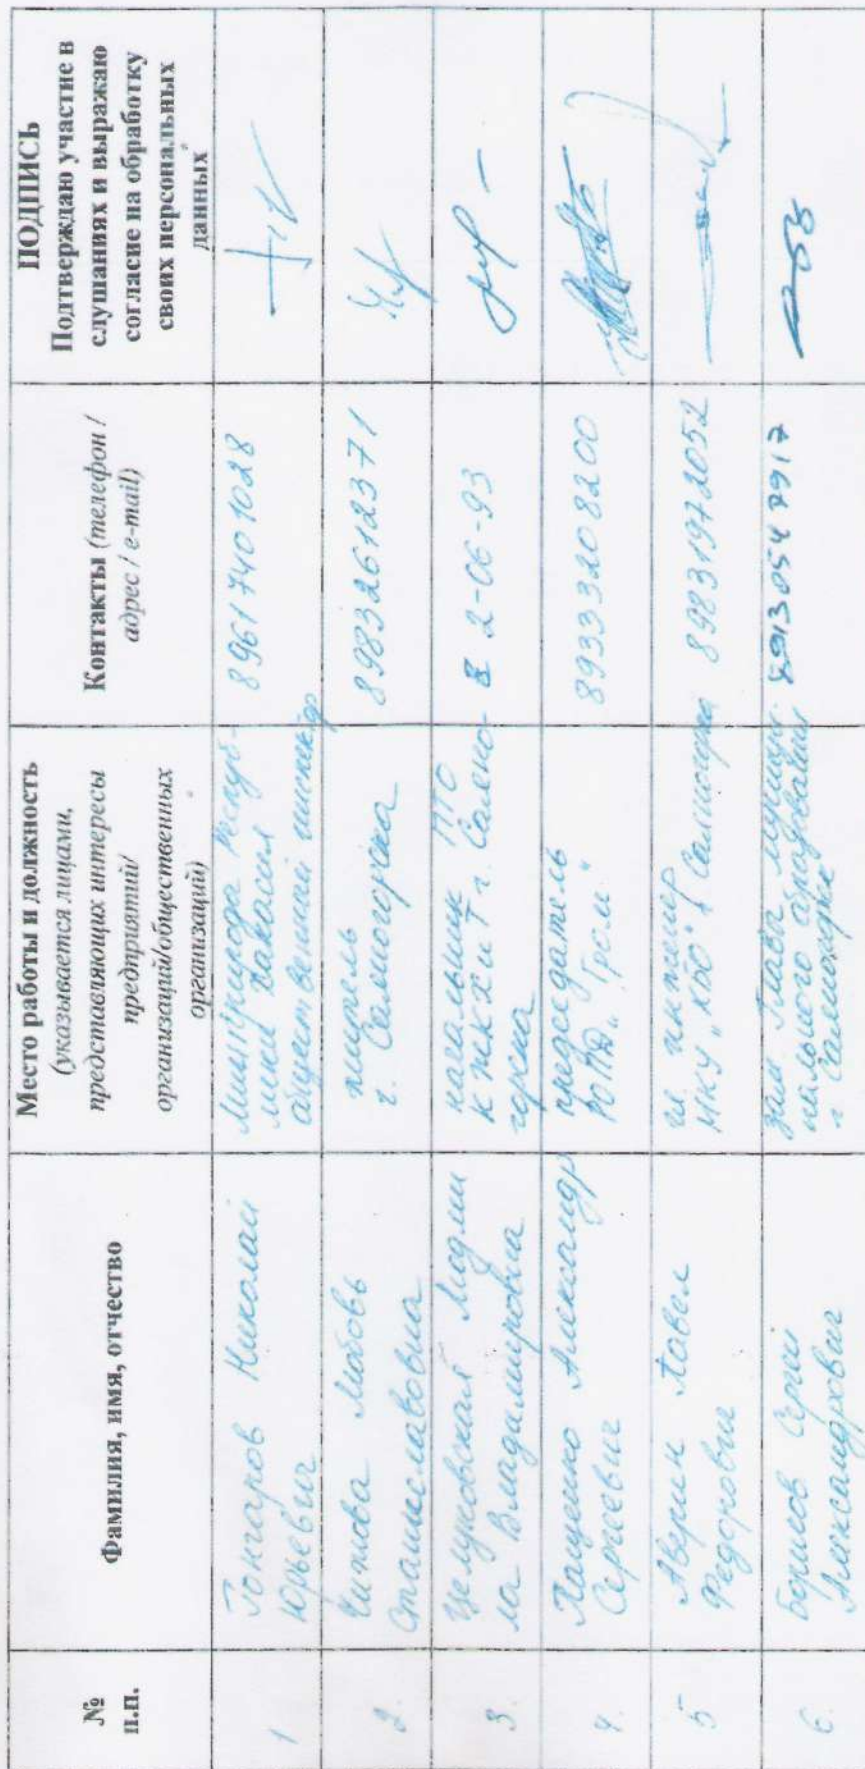 №
п.п.
Фамилия, имя, отчество
Место работы и должность
(указывается лицами,
представляющих интересы
предприятий/
организаций/общественных
организаций)
Контакты (телефон /
адрес / e-mail)
ПОДПИСЬ
Подтверждаю участие в
слушаниях и выражаю
согласие на обработку
своих персональных
данных
1
Гончаров Николай
Юрьевич
Минприрода Респуб-
лики Хакасия
общественный инспектор
89617401028
2.
Чижова Любовь
Станиславовна
житель
г. Саяногорска
89832612371
3.
Людми
ла Владимировна
начальник ПТО
КЖКХиТ г. Саяно-
горска
2-06-93
4.
Пащенко Александр
Сергеевич
председатель
"Гром"
89333208200
5
Аверин Павел
Федорович
гл. инженер
МКУ "КБО" г Саяногорска
89831972052
6.
Борисов Сергей
Александрович
зам. Главы муници-
пального образования
г Саяногорск